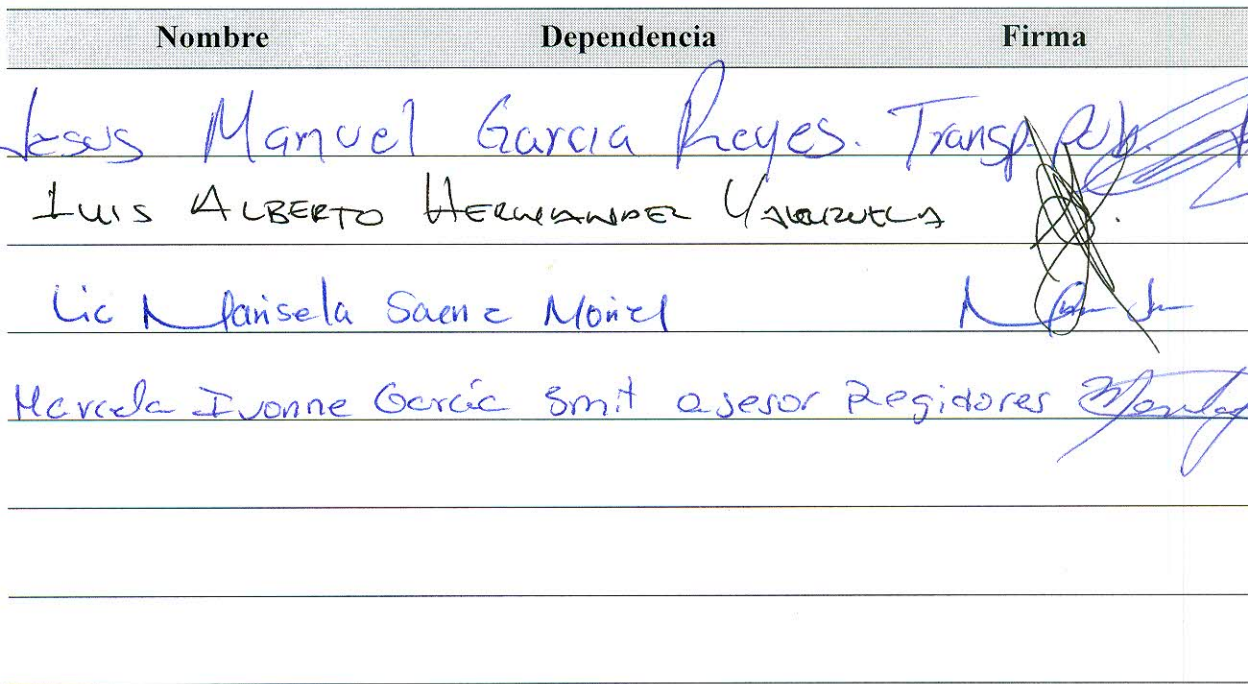 Nombre Dependencia Firma
Jesus Manuel Garcia Reyes. Transp. Pub.
LUIS ALBERTO HERNANDEZ VALENZUELA
Lic Marisela Saenz Moriel
Marcela Ivonne García Smit asesor Regidores